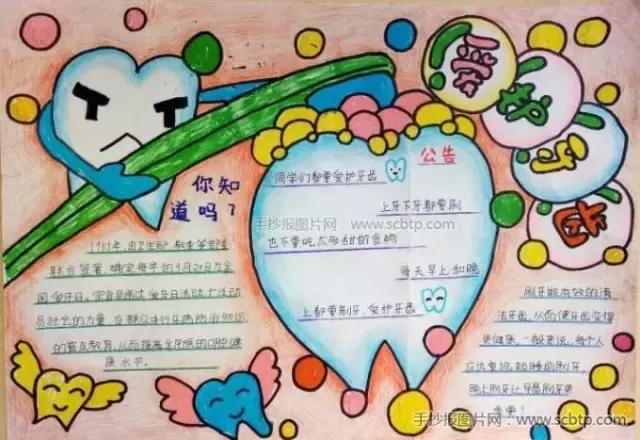 爱护牙齿
你知
道吗？
1989年，由卫生部、教委等部委
联合签署，确定每年的9月20日为全
国爱牙日。宗旨是通过爱牙日活动，广泛动
员社会的力量，在群众中进行牙病防治知识
的普及教育，从而提高全民族的口腔健
康水平。
公告
同学们都要爱护牙齿
上牙下牙都要刷
也不要吃太酸甜的食物
每天早上和晚
上都要刷牙，爱护牙齿
刷牙能有效的清
洁牙齿，从而使牙齿变得
更健康，一般来说，每个人
应该重视起睡前刷牙，
晚上刷牙比早晨刷牙更
重要！
手抄报图片网：www.scbtp.com
手抄报图片网：www.scbtp.com